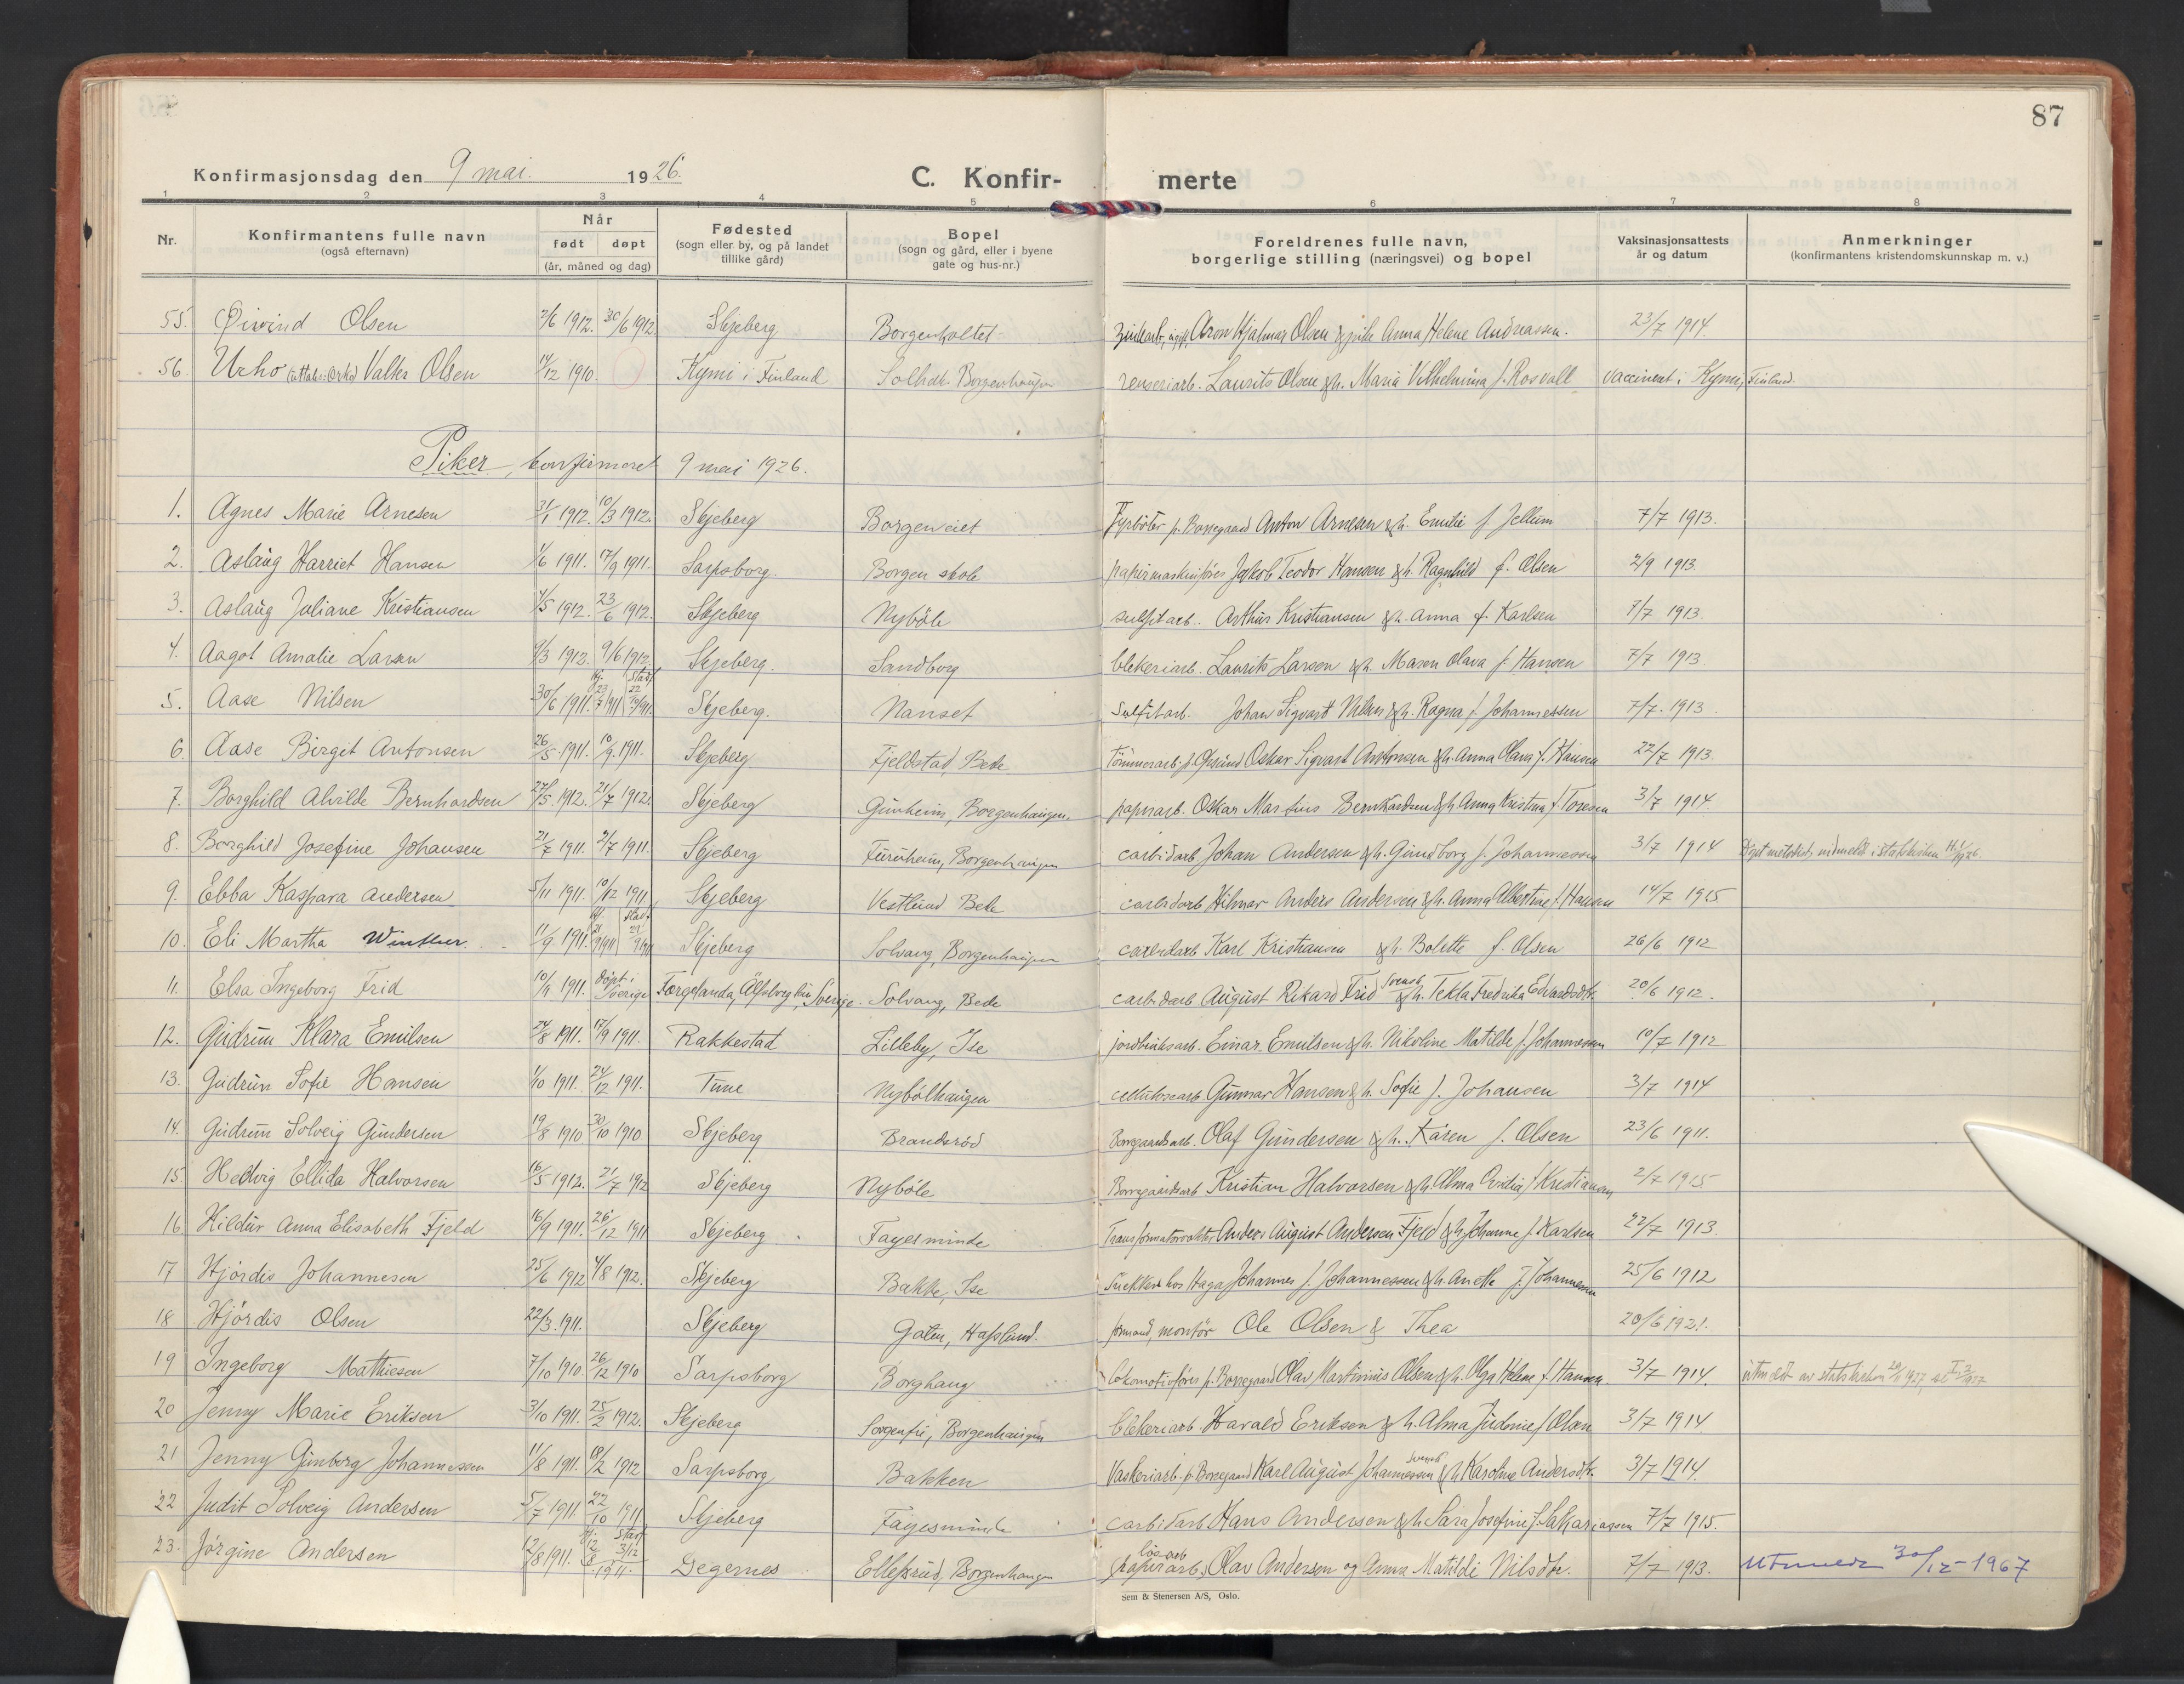 87
Konfirmasjonsdag den 9 mai. 1926. C. Konfir- merte
1 2 3 4 5 6 7 8
Nr. Konfirmantens fulle navn (også efternavn) Når født døpt (år, måned og dag) Fødested (sogn eller by, og på landet tillike gård) Bopel (sogn og gård, eller i byene gate og hus-nr.) Foreldrenes fulle navn, borgerlige stilling (næringsvei) og bopel Vaksinasjonsattests år og datum Anmerkninger (konfirmantens kristendomskunnskap m. v.)
55. Øivind Olsen 2/6 1912. 30/6 1912 Skjeberg Borgenholtet Aron Hjalmar Olsen & Anna Helene Andreassen. 23/7 1914.
56. Urho (uttales: Orko) Valter Olsen 14/12 1910. Kymi i Finland Borgenhaugen renseriarb. Laurits Olsen & h. Maria Vilhelmina f. Rosvall vaccineret i Kymi, Finland.
Piker, konfirmeret 9 mai 1926.
1. Agnes Marie Arnesen 31/1 1912. 10/3 1912. Skjeberg Borgen eiet Fyrbøter p. Borregaard Anton Arnesen & h. Emilie f. Jellum 7/7 1913.
2. Aslaug Harriet Hansen 1/6 1911. 17/9 1911. Sarpsborg. Borgen skole papirmaskinfører Jakob Teodor Hansen & h. Ragnhild f. Olsen 2/9 1913.
3. Aslaug Juliane Kristiansen 4/5 1912. 23/6 1912. Skjeberg Nybøle sulfitarb. Arthur Kristiansen & h. Anna f. Karlsen 7/7 1913.
4. Aagot Amalie Larsen 9/3 1912. 9/6 1912. Skjeberg. Sandborg blekeriarb. Laurits Larsen & h. Maren Olava f. Hansen 7/7 1913.
5. Aase Nilsen 30/6 1911. hj. 23/7 1911 stadf. 22/10 1911. Skjeberg. Nanset Sulfitarb. Johan Sigvart Nilsen & h. Ragna f. Johannessen 7/7. 1913.
6. Aase Birgit Antonsen 26/5. 1911. 10/9. 1911. Skjeberg Fjeldstad, Bede Tømmerarb. Oskar Sigvart Antonsen & h. Anna Olava f. Hansen 22/7 1913.
7. Borghild Alvilde Bernhardsen 27/5. 1912. 21/7 1912. Skjeberg Gunheim, Borgenhaugen. papirarb. Oskar Martius Bernhardsen & h. Anna Kristina f. Toresen 3/7 1914.
8. Borghild Josefine Johansen 21/7 1911. 1911. Skjeberg Furuheim, Borgenhaugen carbidarb. Johan Andersen & h. Gundborg f. Johannessen 3/7 1914 Døpt metodist, indmeldt i statskirken 1926.
9. Ebba Kaspara Andersen 5/11 1911. 10/12 1911 Skjeberg Vestlund Bede carbidarb Hilmar Anders Andersen & h. Anna Albertine f. Hansen 14/7 1915
10. Eli Martha Winther 11/9 1911. hj. 1911 stadf. 1911 Skjeberg Solvang, Borgenhaugen carbidarb Karl Kristiansen & h. Bolette f. Olsen 26/6 1912
11. Elsa Ingeborg Frid 10/9 1911. døpt i Sverige Færgelanda, Älfsborg län, Sverige. Solvang, Bede carbidarb August Rikard Frid svensk & h. Tekla Fredrika Edvardsdtr. 20/6 1912.
12. Gudrun Klara Emilsen 24/8 1911. 17/9 1911. Rakkestad Lilleby, Ise jordbruksarb. Einar Emilsen & h. Nikoline Matilde f. Johannessen 10/7 1912
13. Gudrun Sofie Hansen 1/10 1911. 24/12 1911. Tune Nybølhaugen cellulosearb Gunnar Hansen & h. Sofie f. Johansen 3/7 1914
14. Gudrun Solveig Gundersen 19/8 1910 30/10 1910 Skjeberg Brandsrød Borregaardsarb. Olaf Gundersen & h. Karen f. Olsen 23/6 1911.
15. Hedvig Ellida Halvorsen 16/5 1912. 21/7 1912 Skjeberg Nybøle Borregaardsarb Kristian Halvorsen & h. Alma Ovidia f. Kristiansen 2/7 1915
16 Hildur Anna Elisabeth Fjeld 16/9 1911. 26/12 1911 Skjeberg Fagerminde Transformatorvokter Anders August Andersen Fjeld & h. Johanne f. Karlsen 22/7 1913.
17 Hjørdis Johannesen 25/6 1912 4/8 1912. Skjeberg Bakke, Ise snekker hos Haga Johannes J. Johannessen & h. Anette f. Johannessen 25/6 1912
18 Hjørdis Olsen 22/3. 1911. Skjeberg Gaten, Hafslund. formand, montør Ole Olsen & Thea 20/6 1921.
19 Ingeborg Mathiesen 7/10 1910. 26/12 1910 Sarpsborg Borghaug Lokomotivfører p. Borregaard Olav Martinius Olsen & h. Olga Helene f. Hansen 3/7 1914. utmeldt av statskirken 1927
20 Jenny Marie Eriksen 3/10 1911. 25/2 1912. Skjeberg Sorgenfri, Borgenhaugen blekeriarb. Harald Eriksen & h. Alma Judine f. Olsen 3/7 1914
21 Jenny Gunborg Johannessen 11/8 1911. 18/2 1912 Sarpsborg Bakken Vaskeriarb. p. Borregaard Karl August Johannessen svensk & h. Karoline Andersdtr. 3/7 1914.
22 Judit Solveig Andersen 5/7 1911 22/10 1911 Skjeberg Fagerminde carbidarb Hans Andersen & h. Sara Josefine f. Sakariassen 7/7 1915.
23. Jørgine Andersen 12/8 1911. hj. 12/8 stadf. 3/12 1911. Degernes Ellefsrud, Borgenhaugen løsarb papirarb. Olav Andersen og Anna Matilde Nilsdtr. 7/7 1913. Utmeldt 30/12-1967
Sem & Stenersen A/S, Oslo.